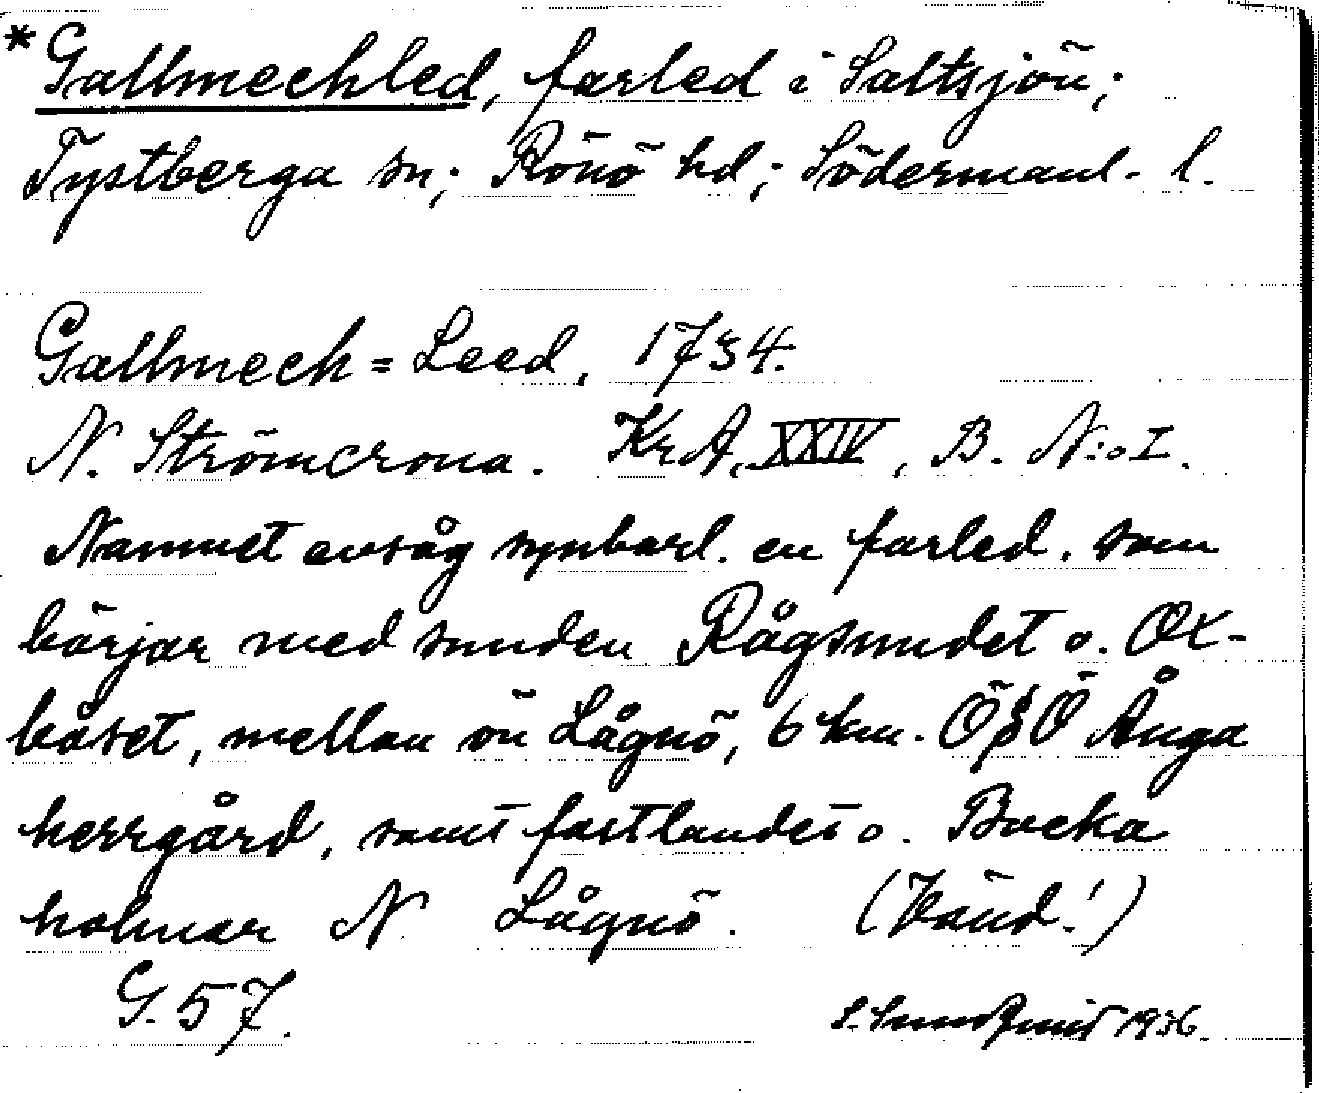 *Gallmechled, farled i Saltsjön;
Tystberga sn; Rönö hd; Södermanl. l.
Gallmech=Leed, 1734.
N. Strömcrona. KrA, XXIV, B. N:o I.
Namnet avsåg synbarl. en farled, som
börjar med sunden Rågsundet o. Ox-
båset, mellan ön Långö, 6 km. ÖSÖ Ånga
herrgård, samt fastlandet o. Bocka
holmar N Långö. (Vänd!)
G. 57.
S. Sundqvist 1936.